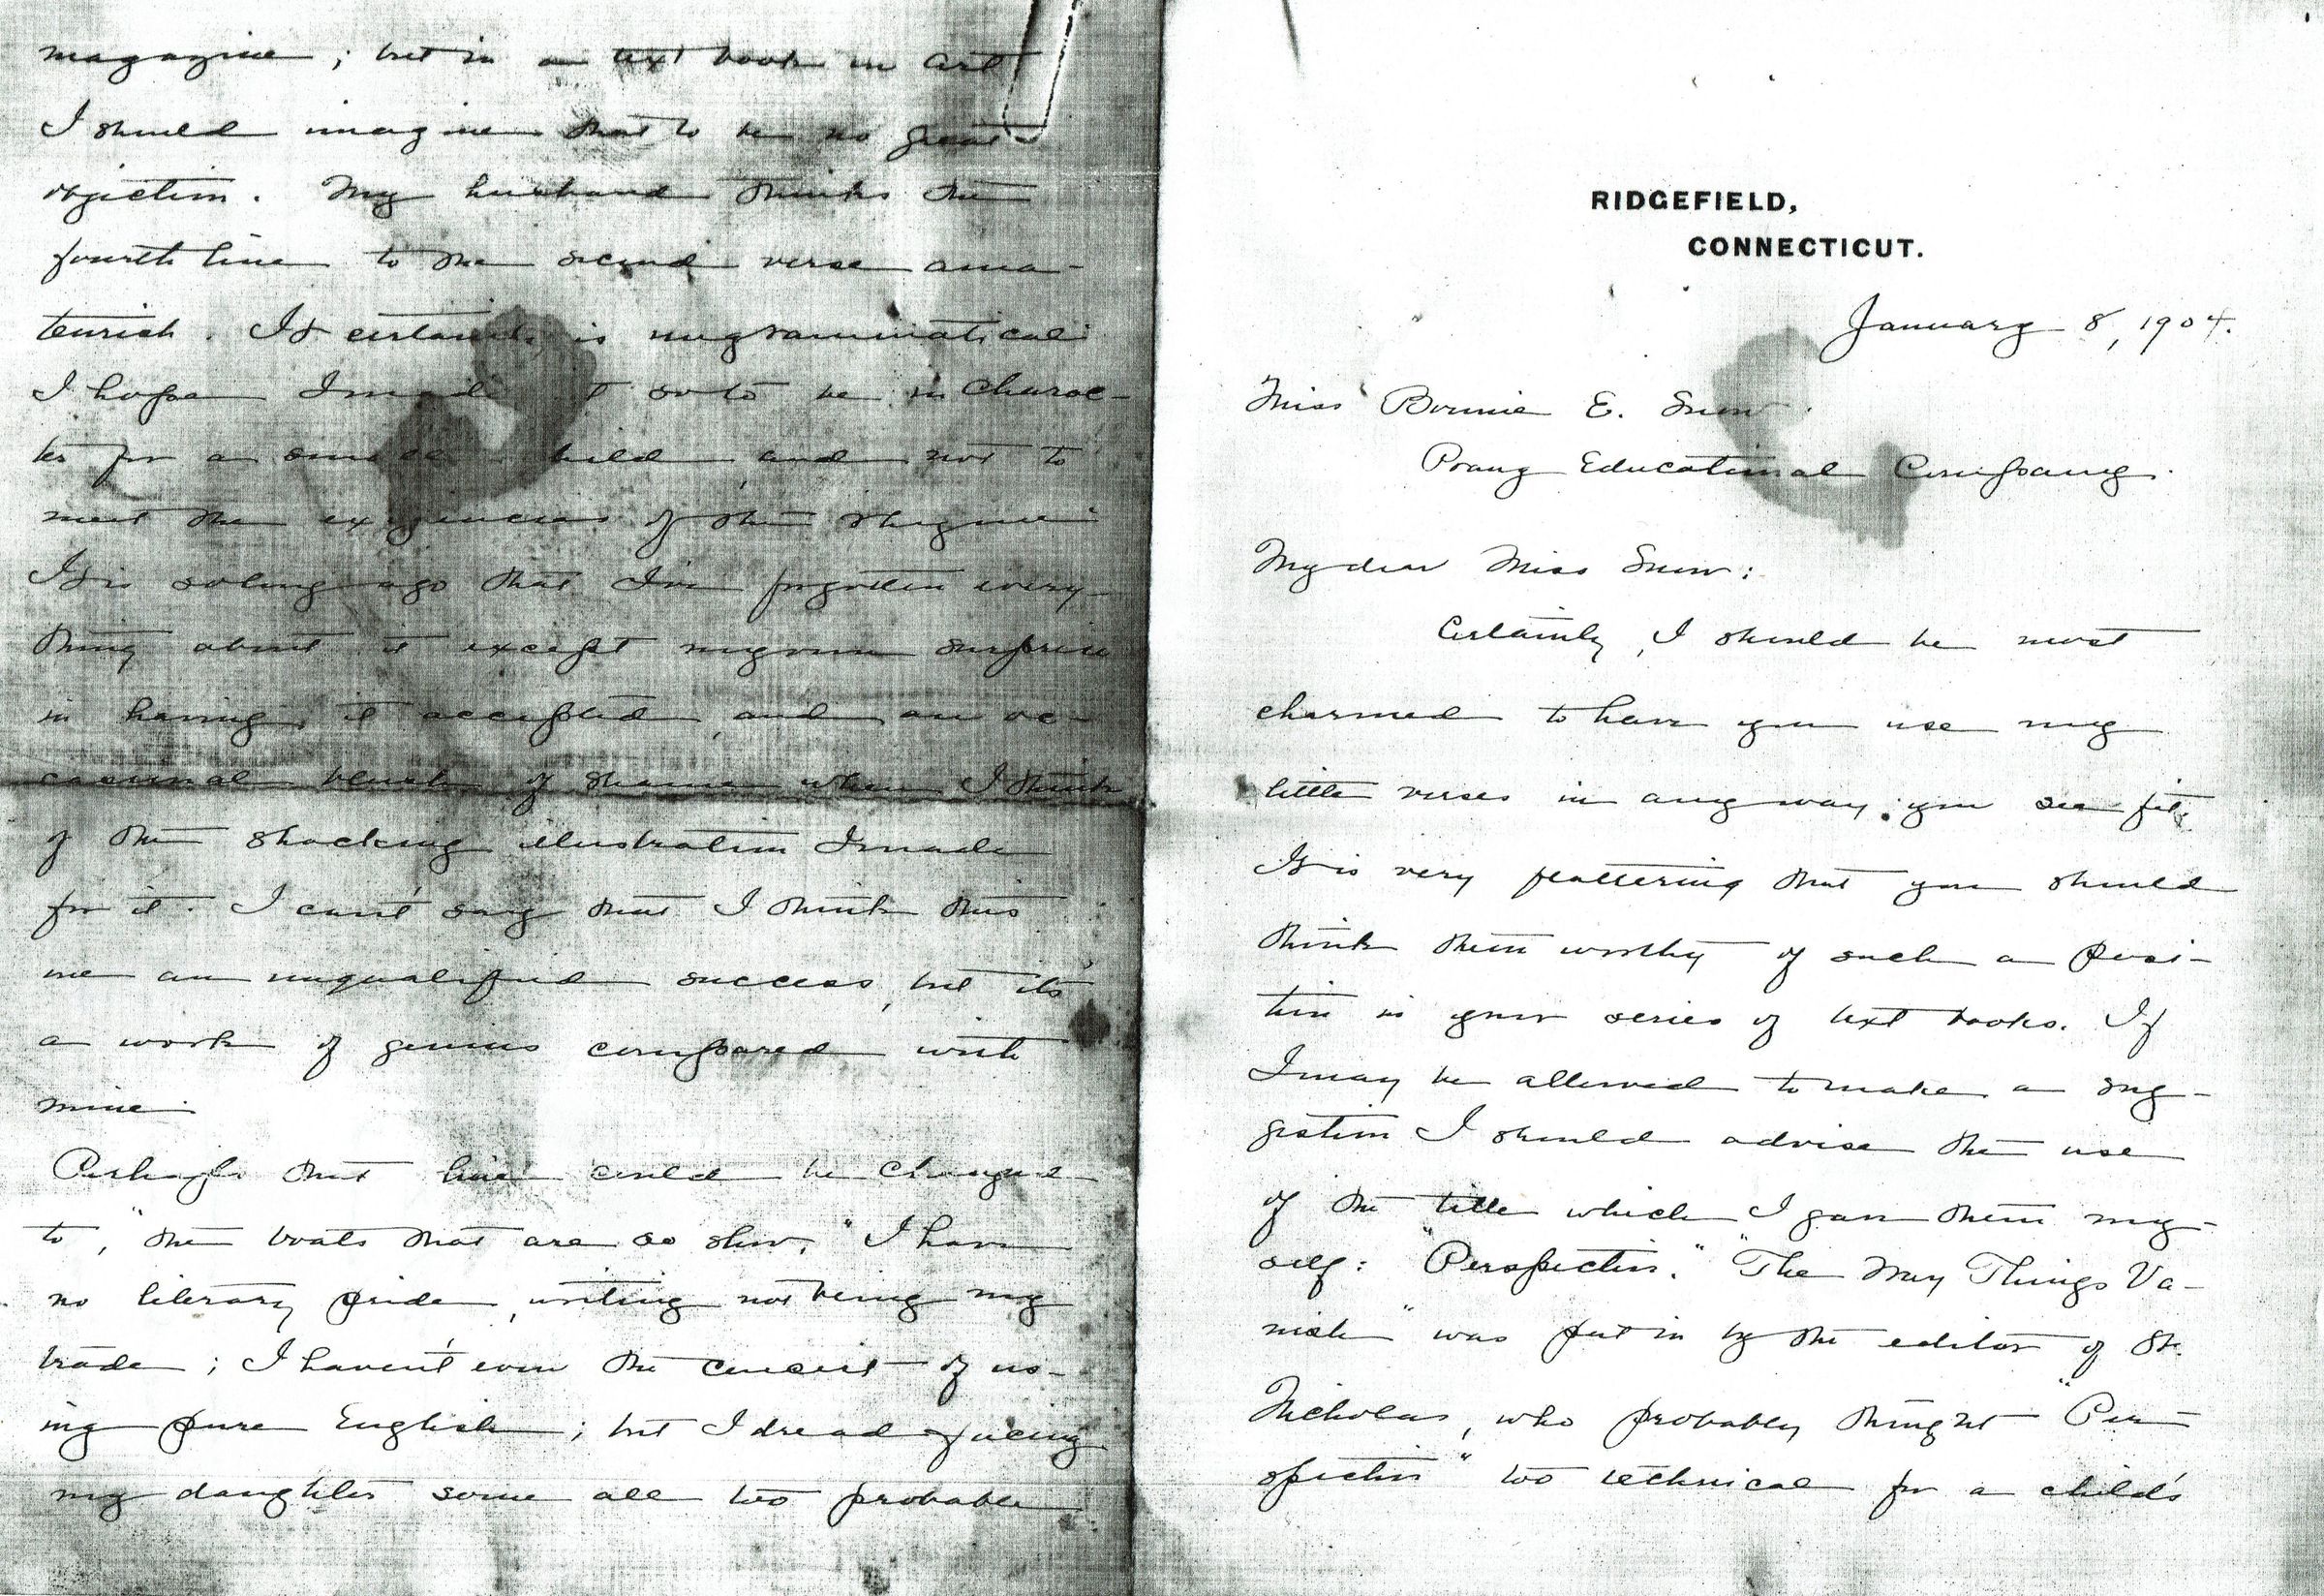 RIDGEFIELD,
CONNECTICUT.
January 8, 1904.
Miss Bonnie E. Snow.
Prang Educational Company.
My dear Miss Snow:
Certainly, I should be most
charmed to have you use my
little verses in any way you see fit.
It is very flattering that you should
think them worthy of such a posi-
tion in your series of text books. If
I may be allowed to make a sug-
gestion I should advise the use
of the title which I gave them my-
self: "Perspective." "The Way Things Va-
nish" was put in by the editor of St.
Nicholas, who probably thought "Per-
spective" too technical for a child's
magazine; but in a text book in art
I should imagine that to be no great
objection. My husband thinks the
fourth line to the second verse ama-
teurish. It certainly is ungrammatical
I hope I made it so to be in charac-
ter for a small child, and not to
meet the exigencies of the rhyme.
It is so long ago that I've forgotten every-
thing about it except my own surprise
in having it accepted, and an oc-
casional blush of shame when I think
of the shocking illustration I made
for it. I can't say that I think this
one an unqualified success, but it's
a work of genius compared with
mine.
Perhaps that line could be changed
to, "the boats that are so slow." I have
no literary pride, writing not being my
trade; I haven't even the conceit of us-
ing pure English; but I dread facing
my daughter some all too probable